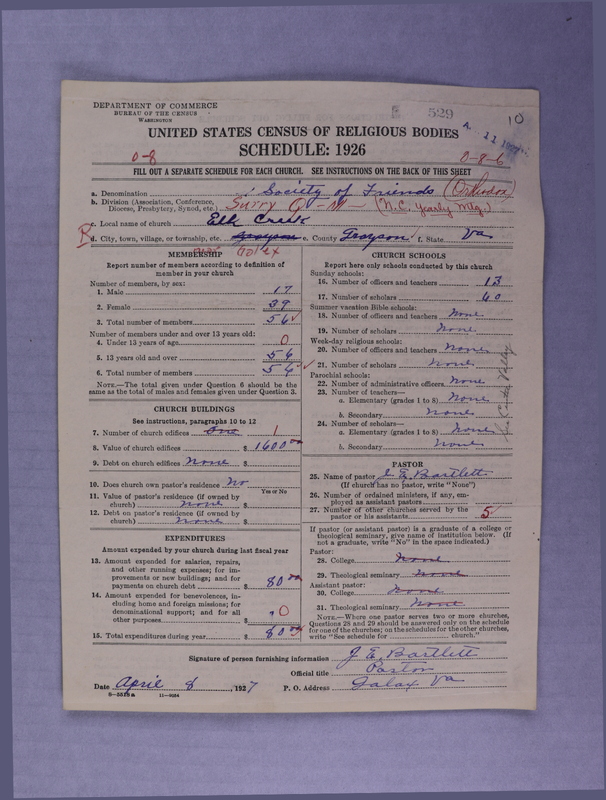 DEPARTMENT OF COMMERCE
BUREAU OF THE CENSUS
WASHINGTON
529
10
UNITED STATES CENSUS OF RELIGIOUS BODIES
SCHEDULE: 1926
0-8
0-8-6
FILL OUT A SEPARATE SCHEDULE FOR EACH CHURCH. SEE INSTRUCTIONS ON THE BACK OF THIS SHEET
a. Denomination Society of Friends (Orthodox)
b. Division (Association, Conference, Diocese, Presbytery, Synod, etc.) Surry Q-M- (N.C. Yearly Mtg.)
c. Local name of church Elk Creek
d. City, town, village, or township, etc. Grayson e. County Grayson f. State Va
Galax
MEMBERSHIP
Report number of members according to definition of
member in your church
Number of members, by sex:
1. Male 17
2. Female 39
3. Total number of members 56
Number of members under and over 13 years old:
4. Under 13 years of age 0
5. 13 years old and over 56
6. Total number of members 56
NOTE.—The total given under Question 6 should be the
same as the total of males and females given under Question 3.
CHURCH BUILDINGS
See instructions, paragraphs 10 to 12
7. Number of church edifices One 1
8. Value of church edifices $ 1600 00
9. Debt on church edifices None $
10. Does church own pastor's residence No
Yes or No
11. Value of pastor's residence (if owned by
church) none $
12. Debt on pastor's residence (if owned by
church) none $
EXPENDITURES
Amount expended by your church during last fiscal year
13. Amount expended for salaries, repairs,
and other running expenses; for im-
provements or new buildings; and for
payments on church debt $ 80 00
14. Amount expended for benevolences, in-
cluding home and foreign missions; for
denominational support; and for all
other purposes 0
15. Total expenditures during year $ 80
CHURCH SCHOOLS
Report here only schools conducted by this church
Sunday schools:
16. Number of officers and teachers 13
17. Number of scholars 60
Summer vacation Bible schools:
18. Number of officers and teachers None
19. Number of scholars None
Week-day religious schools:
20. Number of officers and teachers None
21. Number of scholars None
Parochial schools:
22. Number of administrative officers None
23. Number of teachers—
a. Elementary (grades 1 to 8) None
b. Secondary None
24. Number of scholars—
a. Elementary (grades 1 to 8) None
b. Secondary None
PASTOR
25. Name of pastor J E Bartlett
(If church has no pastor, write "None")
26. Number of ordained ministers, if any, em-
ployed as assistant pastors
27. Number of other churches served by the
pastor or his assistants 5
If pastor (or assistant pastor) is a graduate of a college or
theological seminary, give name of institution below. (If
not a graduate, write "No" in the space indicated.)
Pastor:
28. College None
29. Theological seminary None
Assistant pastor:
30. College None
31. Theological seminary None
NOTE.—Where one pastor serves two or more churches,
Questions 28 and 29 should be answered only on the schedule
for one of the churches; on the schedules for the other churches,
write "See schedule for church."
Signature of person furnishing information J E Bartlett
Official title Pastor
Date April 8, 1927
P. O. Address Galax Va